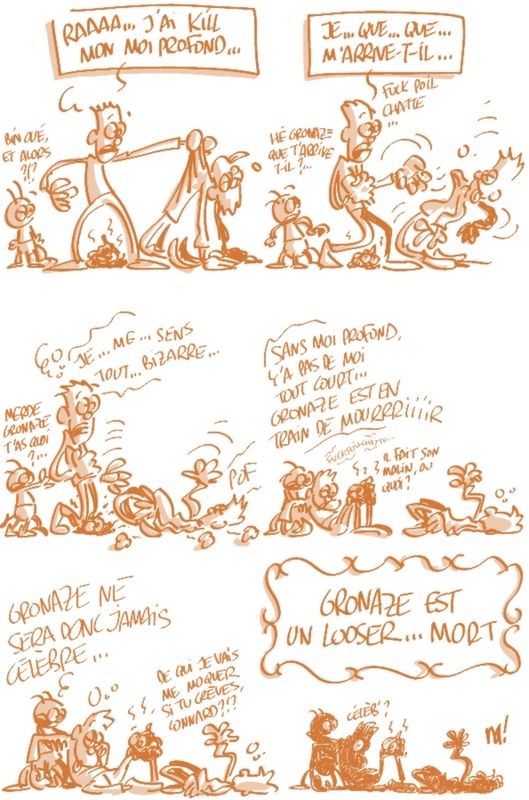 RAAAA... J'AI KILL
MON MOI PROFOND...
BIN QUÉ,
ET ALORS
?!?
JE... QUE... QUE...
M'ARRIVE-T-IL...
FUCK POIL
CHATTE
...
HÉ GRONAZE
QUE T'ARRIVE
T-IL ?...
JE... ME... SENS
TOUT... BIZARRE...
MERDE
GRONAZE
T'AS QUOI
?...
POF
SANS MOI PROFOND,
Y'A PAS DE MOI
TOUT COURT...
GRONAZE EST EN
TRAIN DE MOURRRIIIIR
FUCKPOILCHATTE...
IL FAIT SON
MALIN, OU
QUOI ?
GRONAZE NE
SERA DONC JAMAIS
CÉLÈBRE...
DE QUI JE VAIS
ME MOQUER
SI TU CRÈVES,
CONNARD ?!?
GRONAZE EST
UN LOOSER... MORT
CÉLÈB'?